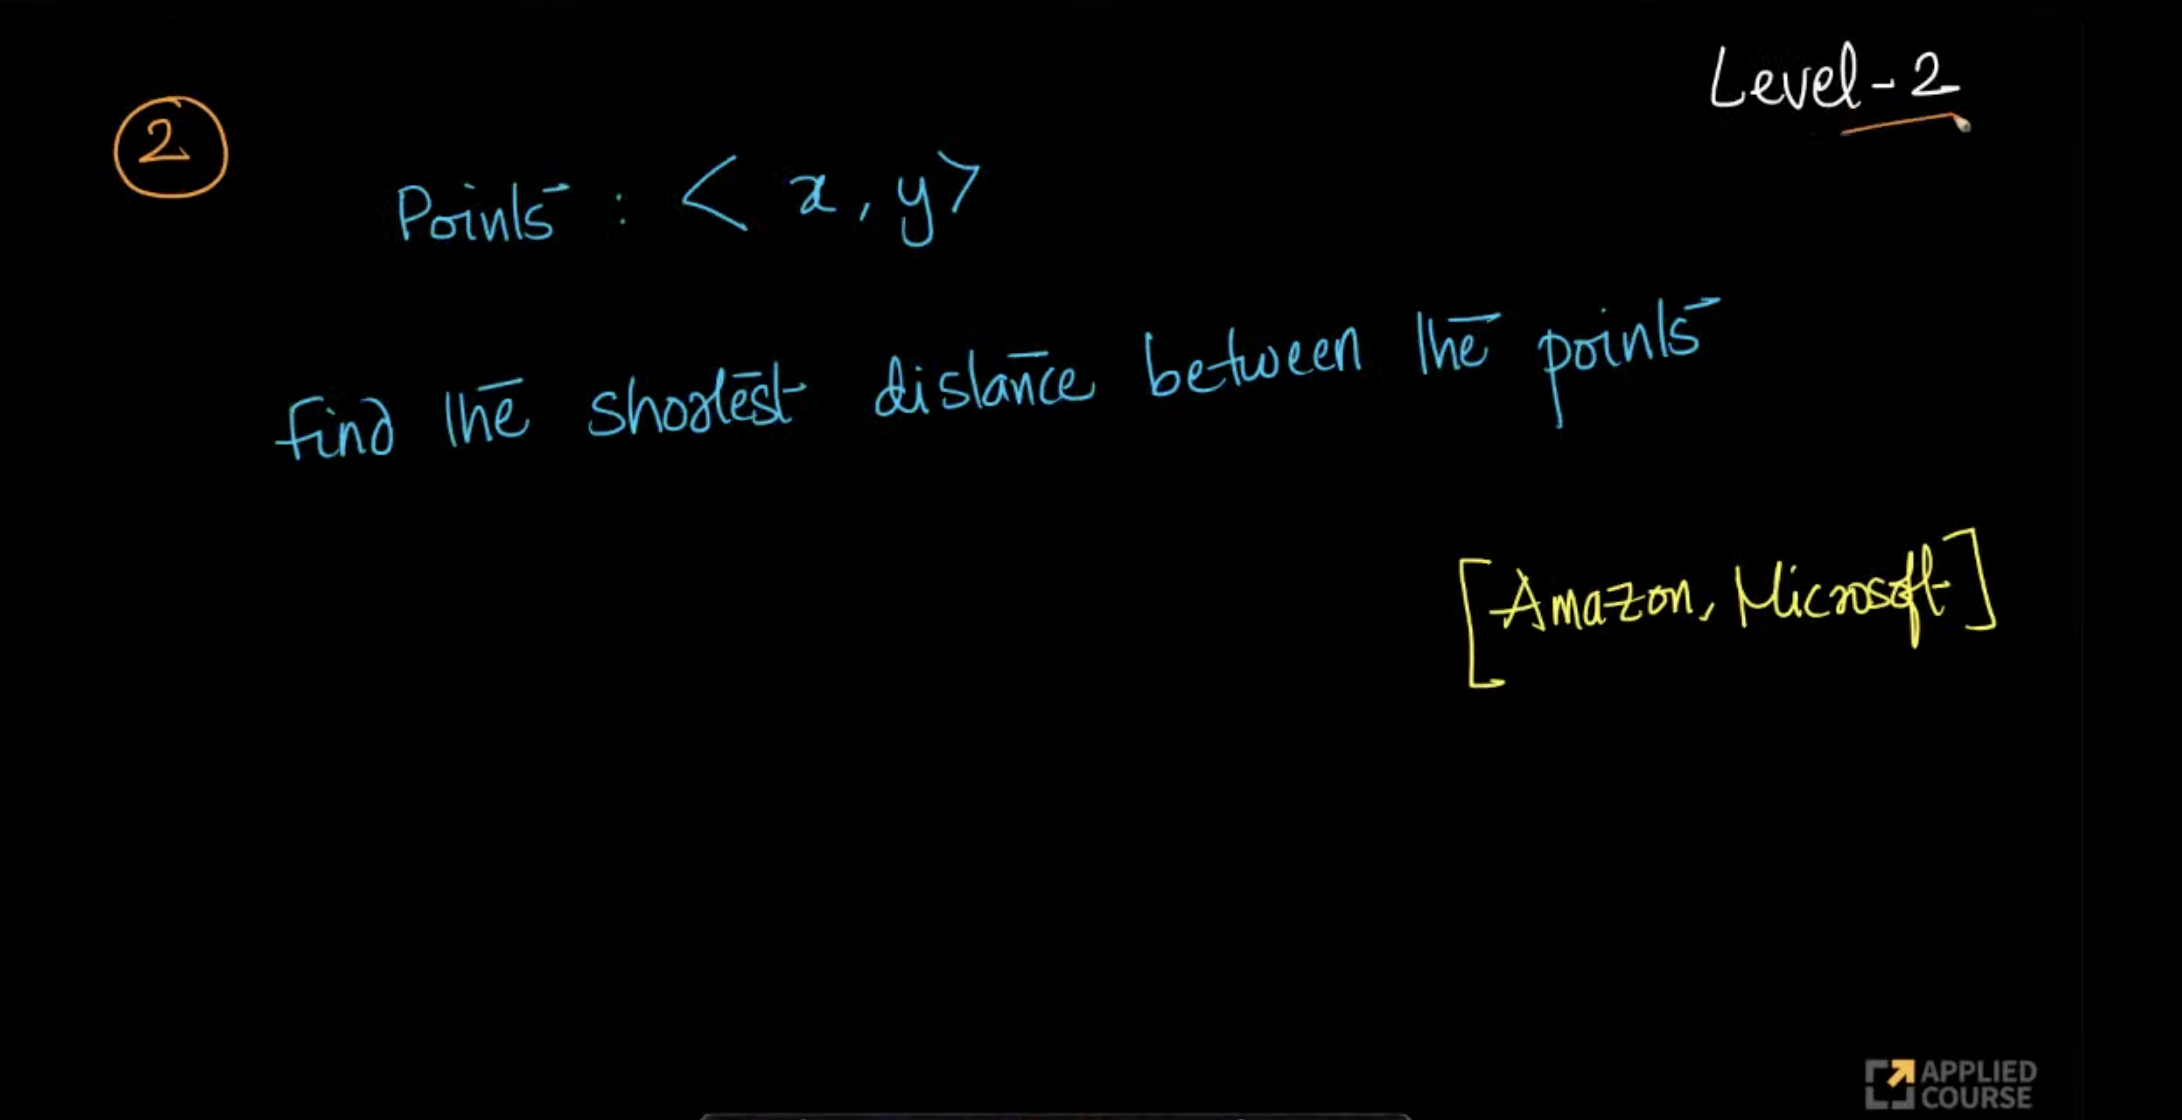 Level-2
2
Points : < x, y>
find the shortest distance between the points
[Amazon, Microsoft]
APPLIED
COURSE